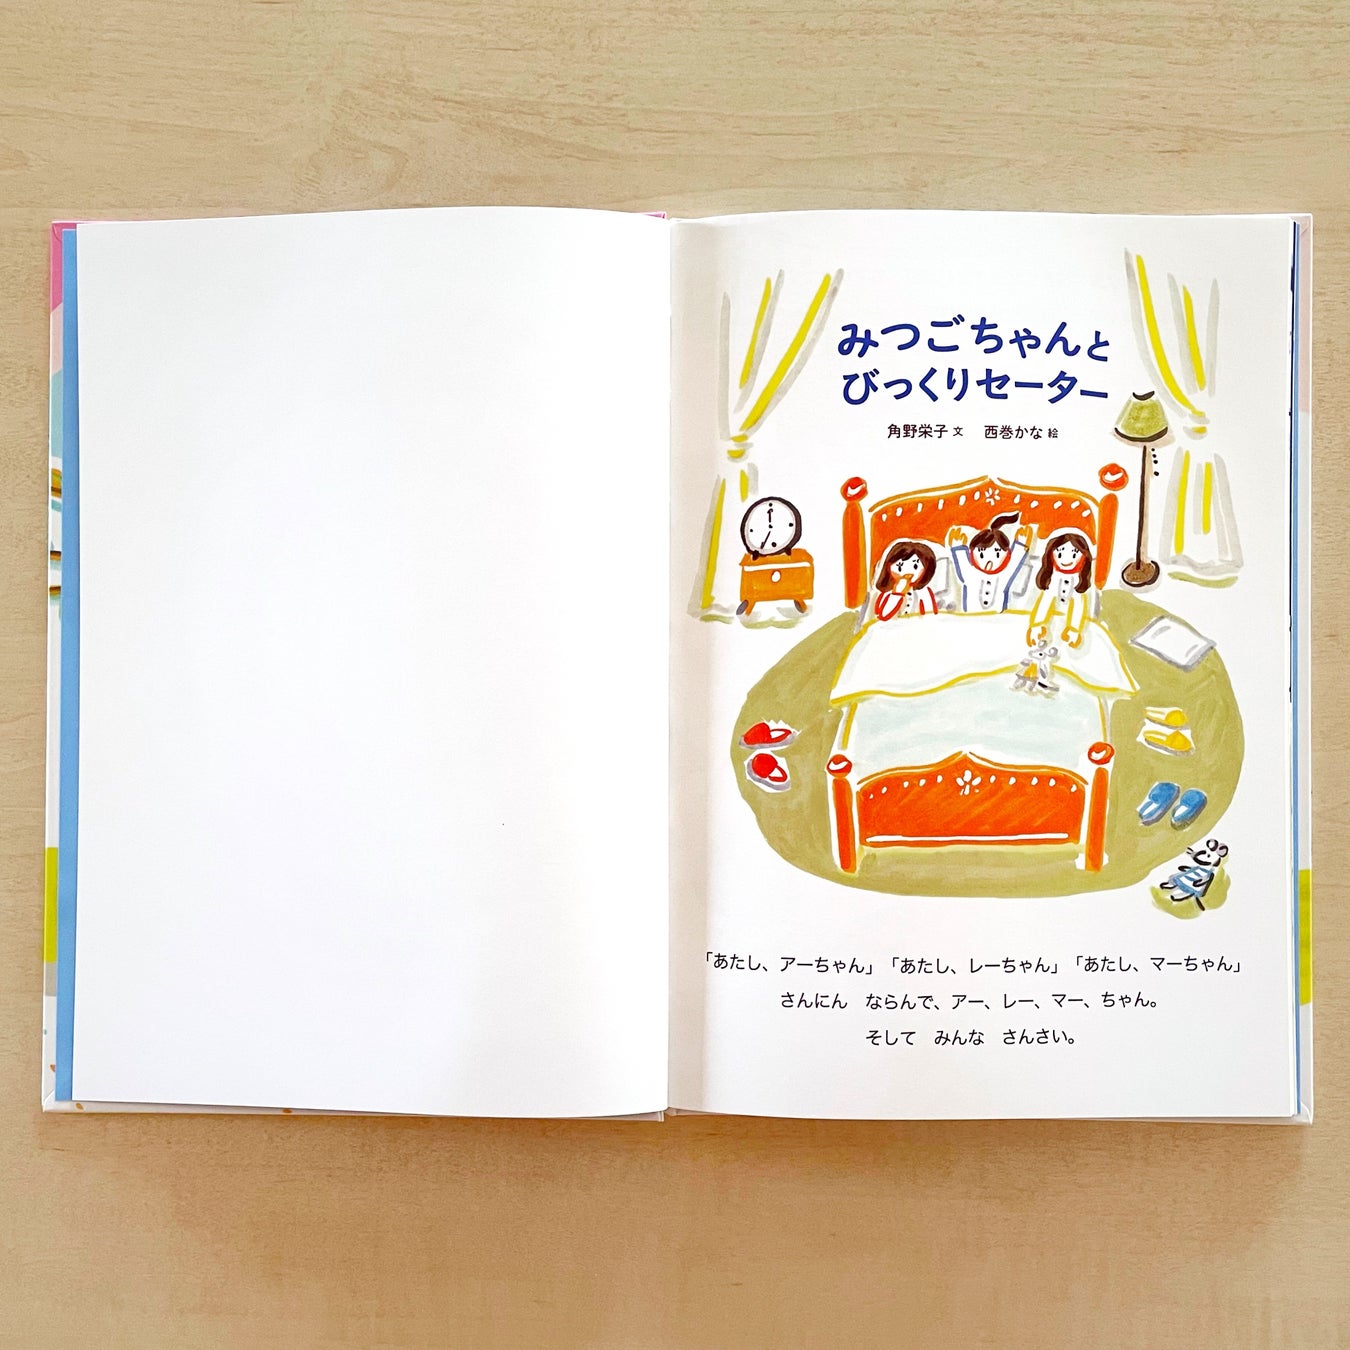 みつごちゃんと
びっくりセーター
角野栄子 文　西巻かな 絵
「あたし、アーちゃん」「あたし、レーちゃん」「あたし、マーちゃん」
さんにん　ならんで、アー、レー、マー、ちゃん。
そして　みんな　さんさい。